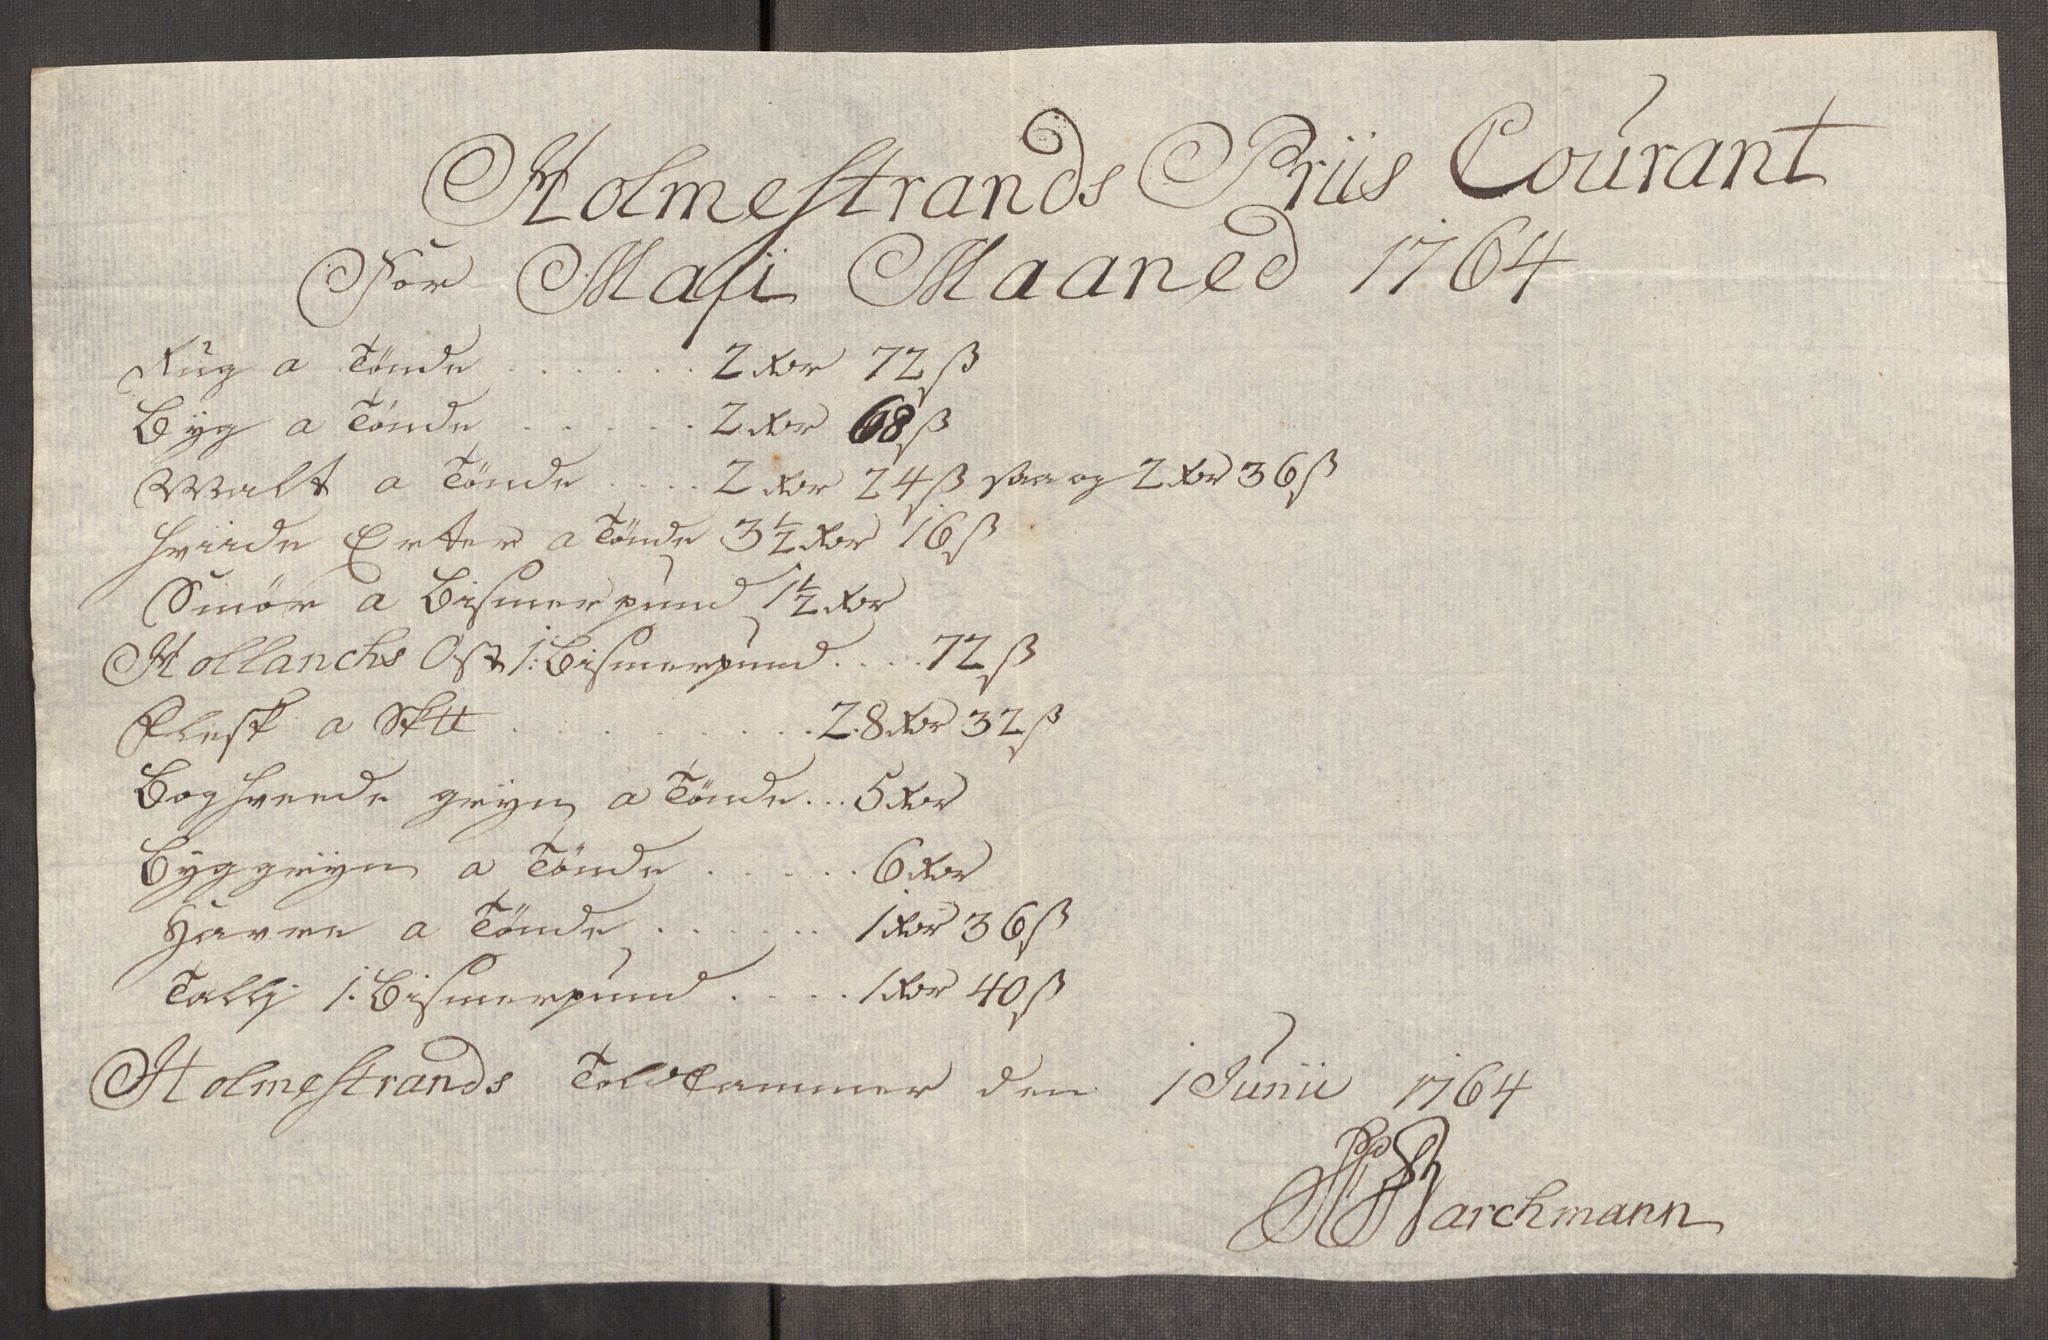 Holmestrands Priis Courant
For Maji Maaned 1764
Rug a Tønde ...... 2 Rdr 72 ß
Byg a Tønde ...... 2 Rdr 68 ß
Malt a Tønde .... 2 Rdr 24 ß saa og 2 Rdr 36 ß
hviide Erter a Tønde 3½ Rdr 16 ß
Smör a Bismerpund 1½ Rdr
Hollandes Ost 1: Bismerpund .... 72 ß
Flesk a Sktt .......... 28 Rdr 32 ß
Boghveede gryn a Tønde ... 5 Rdr
Byggryn a Tønde ...... 6 Rdr
Havre a Tønde ...... 1 Rdr 36 ß
Tallj 1: Bismerpund .... 1 Rdr 40 ß
Holmestrands Toldkammer den 1 Junii 1764
Barchmann